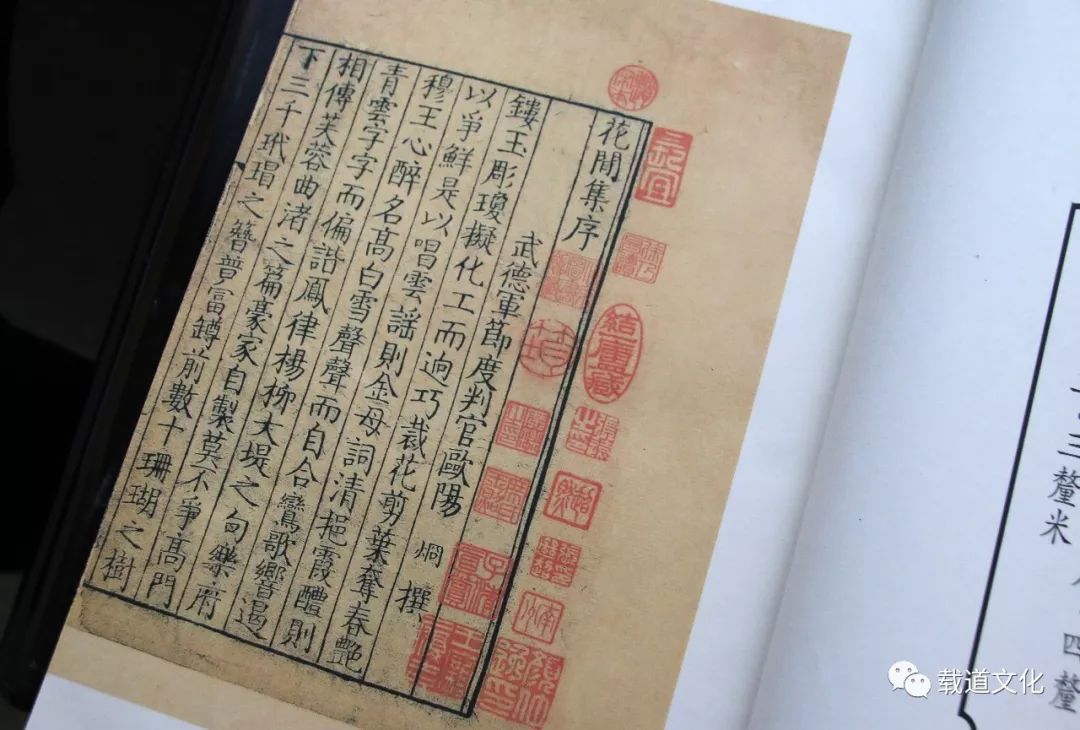 花閒集序
武德軍節度判官歐陽 烱 撰
鏤玉彫瓊擬化工而逈巧裁花剪葉奪春艶
以爭鮮是以唱雲謡則金母詞清挹霞醴則
穆王心醉名髙白雪聲聲而自合鸞歌響遏
青雲字字而偏諧鳳律楊柳大堤之句樂府
相傳芙蓉曲渚之篇豪家自製莫不爭髙門
下三千玳瑁之簪競富罇前數十珊瑚之樹
四釐
三釐米
载道文化